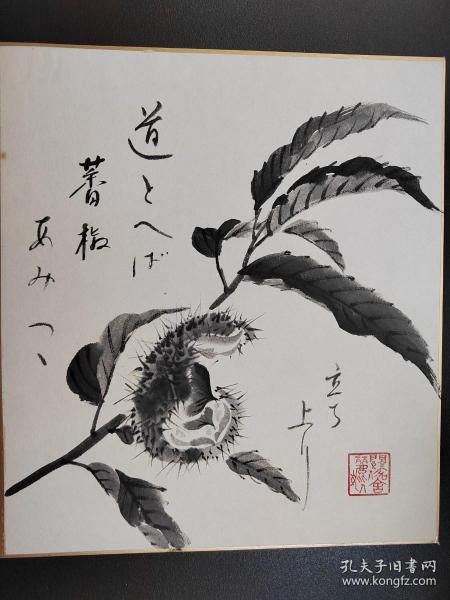 道とへば
蕃椒
あみつゝ
立ち
上り
孔夫子旧书网
www.kongfz.com